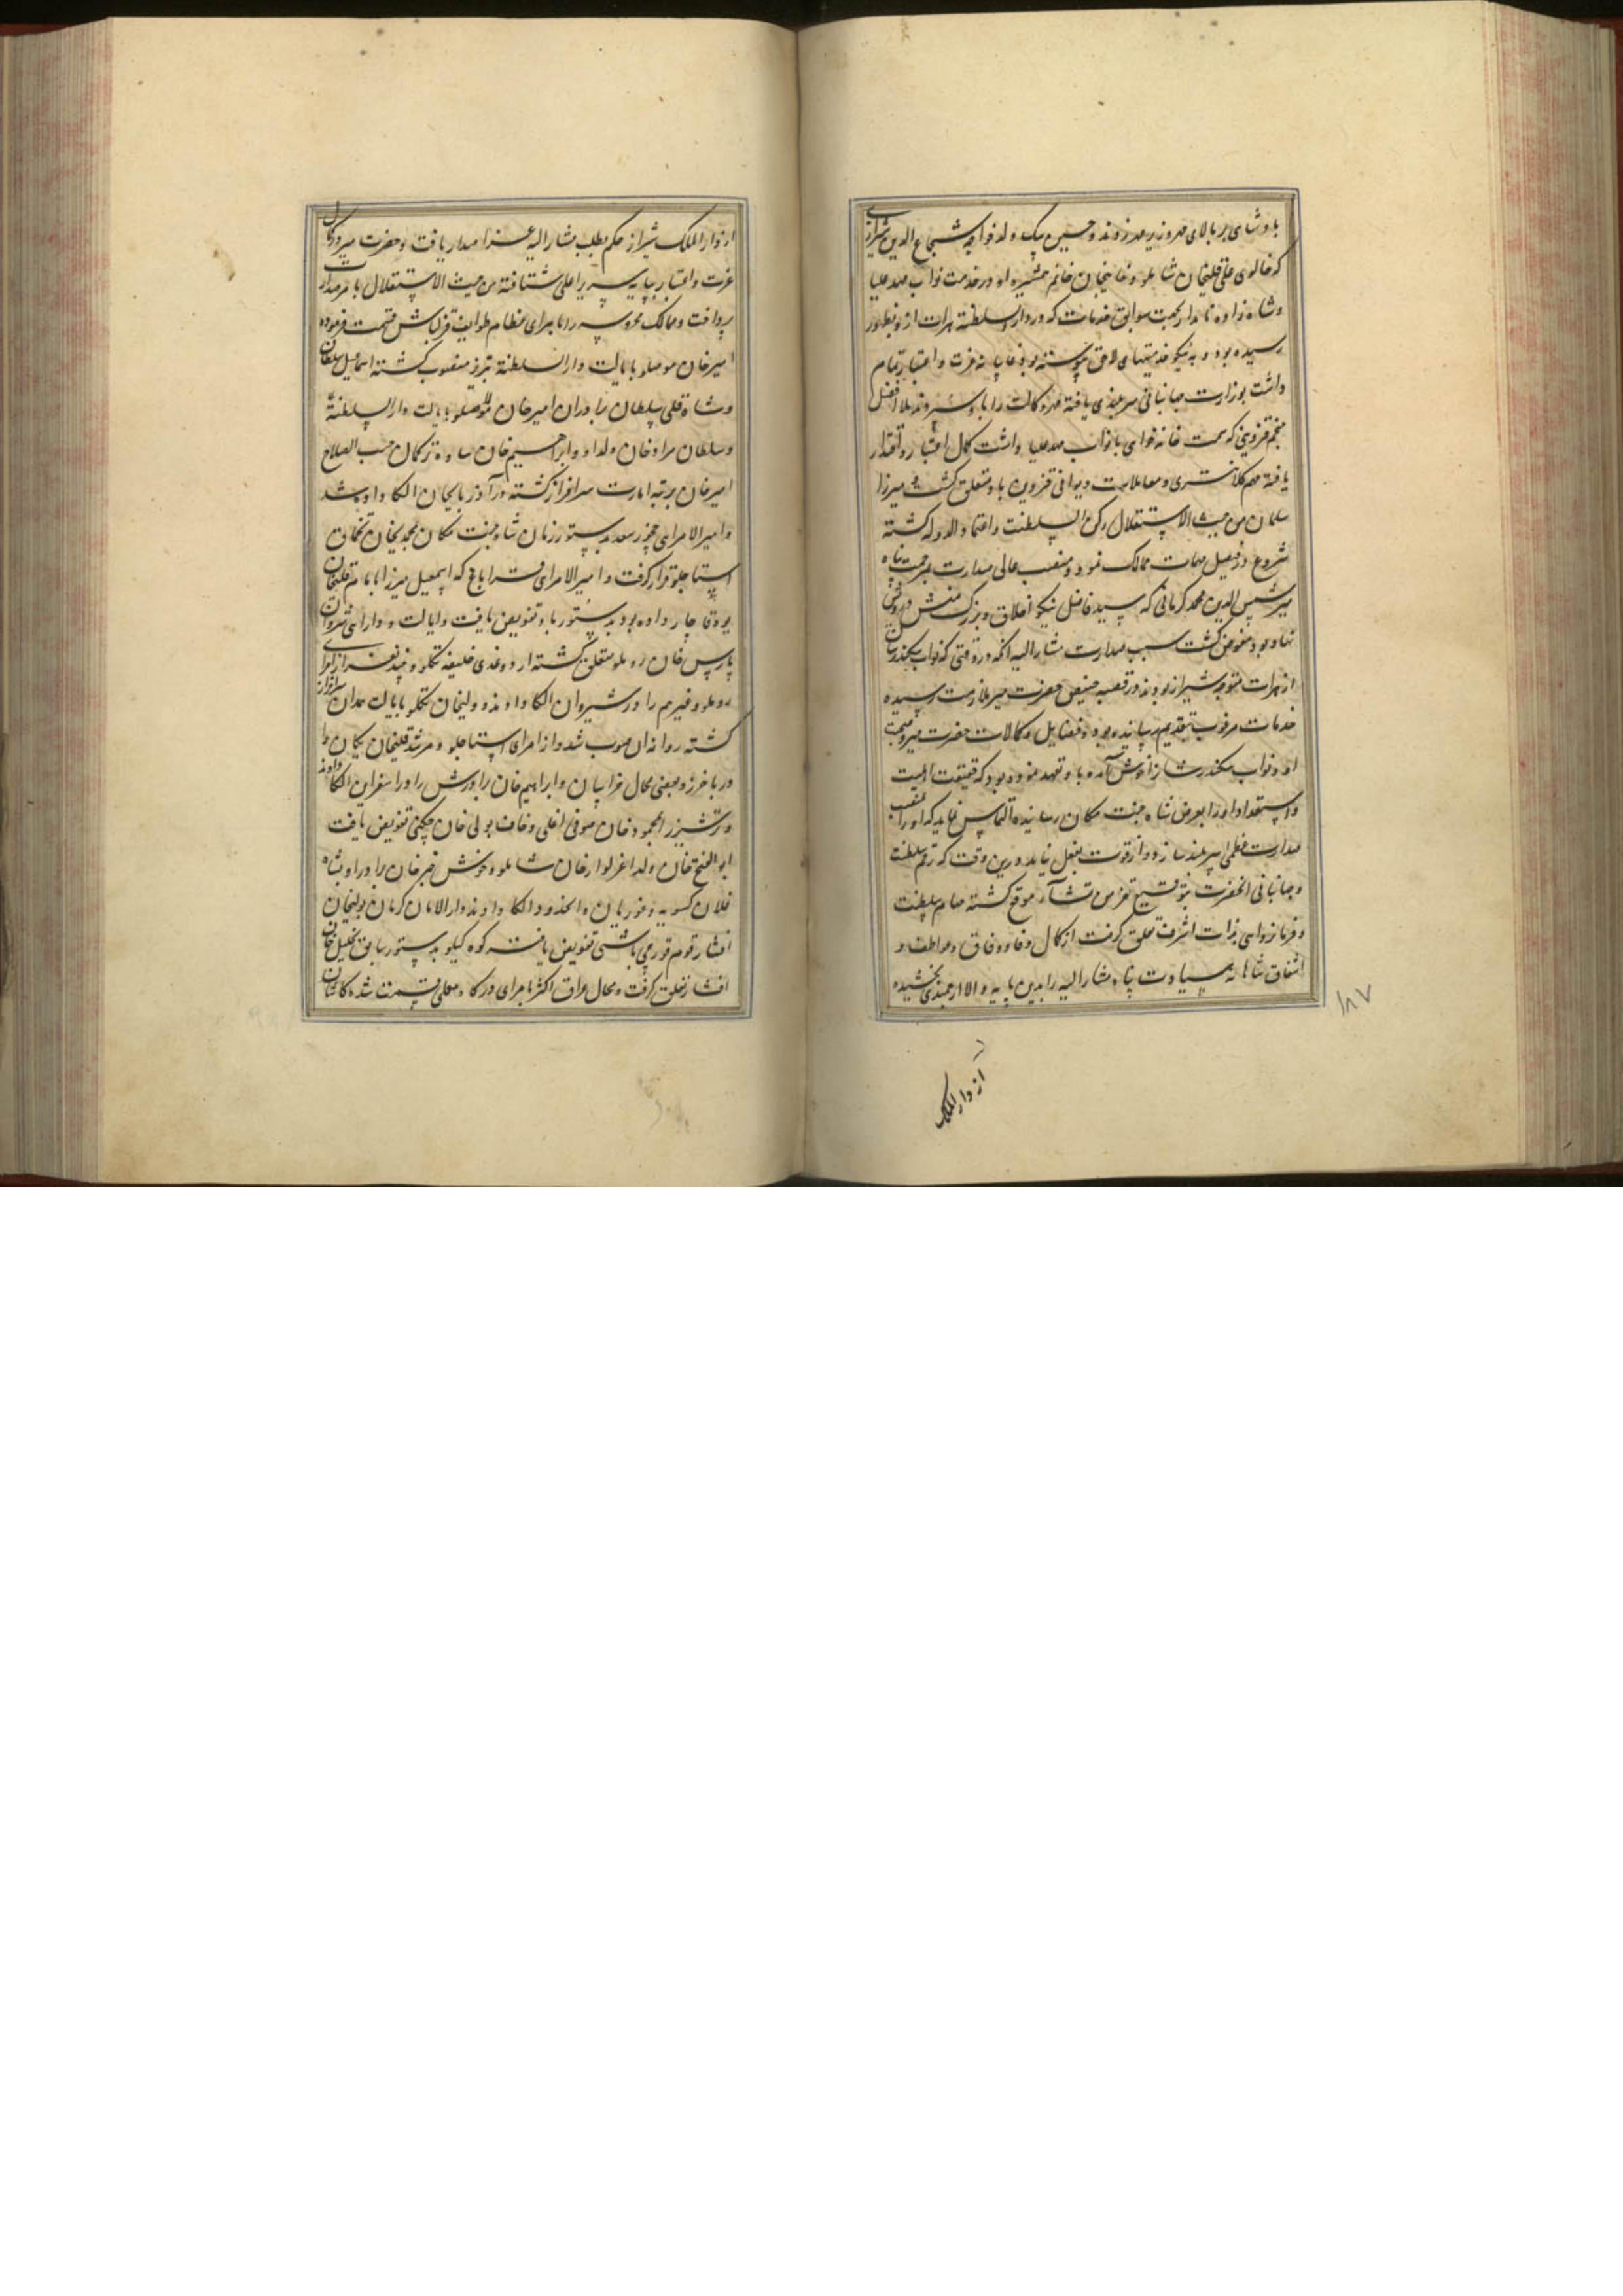 پادشاهی بر بالای مهر وزیر مهر زدند و حسین بیک ولد خواجه شجاع الدین شیرازی
که خالوی علی قلیخان شاملو و خانیخان خانم همشیره او در خدمت نواب مهد علیا
و شاهزاده نامدار بجهت سوابق خدمات که در دار السلطنه هرات از و بظهور
رسیده بود و به نیکو خدمتیهای لاحق پیوسته بود غایبانه عزت و اعتبار تمام
داشت بوزارت جهانبانی سربلندی یافته مهر وکالت را باو سپردند ملا افضل
منجم قزوینی که سمت خانه خواهی با نواب مهد علیا داشت کمال اعتبار و اقتدار
یافته مهم کلانتری و معاملات دیوانی قزوین باو متعلق گشت و میرزا
سلمان من حیث الاستقلال رکن السلطنت و اعتماد الدوله گشته
شروع در فیصل مهمات ممالک نمود و منصب عالی صدارت بمرحمت پناه
میر شمس الدین محمد کرمانی که سید فاضل نیکو اخلاق و بزرگ منش درویش
نهاد بود مفوض گشت سبب صدارت مشار الیه آنکه در وقتی که نواب سکندر شان
از هرات متوجه شیراز بودند در قصبه خبیص حضرت میر بملازمت رسیده
خدمات مرغوب بتقدیم رسانیده بود و فضایل و کمالات حضرت میر و صحبت
او نواب سکندر شان را خوش آمده باو تعهد نموده بود که حقیقت اهلیت
و استعداد او را بعرض شاه جنت مکان رسانیده التماس نماید که او را بمنصب
صدارت عظمی سربلند سازد و از قوت بفعل نیامد درین وقت که رقم سلطنت
و جهانبانی آنحضرت بتوقیع موقع گشته مهام سلطنت
و فرمانروایی بذات اشرف متعلق گرفت از کمال وفا و وفاق و عواطف و
اشفاق شاهانه سیادت پناه مشار الیه را بدین پایه والا ارجمندی بخشیده
۱۸۷
از دار الملک
از دار الملک شیراز حکم بطلب مشار الیه عز اصدار یافت و حضرت میر در کمال
عزت و اعتبار بپایه سریر اعلی شتافته من حیث الاستقلال بامر صدارت
پرداخت و ممالک محروسه را بامرای عظام طوایف قزلباش قسمت فرموده
امیرخان موصلو بایالت دار السلطنه تبریز منصوب گشته اسماعیل سلطان
و شاه قلی سلطان برادران امیرخان موصلو بایالت دار السلطنه
و سلطان مراد خان ولد او و ابراهیم خان ساوه ترکمان حسب الصلاح
امیرخان برتبه امارت سرافراز گشته در آذربایجان الکا داده شد
و امیر الامرایی چخور سعد بدستور زمان شاه جنت مکان بمحمدیخان تخماق
استاجلو قرار گرفت و امیر الامرای قراباغ که اسمعیل میرزا بامام قلیخان
یوه قاجار داده بود بدستور باو تفویض یافت و ایالت و دارایی شروان
بارس خان روملو متعلق گشته ار دوغدی خلیفه تکلو و چند نفر از امرای
روملو و غیرهم را در شیروان الکا دادند و ولیخان تکلو بایالت همدان سرافراز
گشته روانه آن صوب شد و از امرای استاجلو مرشد قلیخان یکان را
در باخرز و بعضی محال خراسان و ابراهیم خان برادرش را در اسفراین الکا دادند
و ترشیز را بمحمود خان صوفی اغلی و خاف بولی خان چکنی تفویض یافت
ابو الفتح خان ولد اغزلوار خان شاملو و خوش خبر خان برادر او بشاه
فلان کسویه و فوریان و آنحدود الکا دادند و دار الامان کرمان بولیخان
افشار قوم قورچی باشی تفویض یافته کوه کیلو بدستور سابق بخلیل خان
افشار تعلق گرفت و محال عراق اکثر بامرای درگاه معلی قسمت شد کاشان